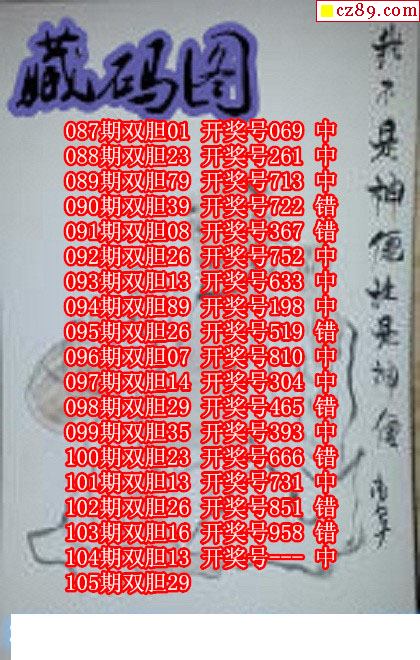 cz89.com
藏码图
087期双胆01 开奖号069 中
088期双胆23 开奖号261 中
089期双胆79 开奖号713 中
090期双胆39 开奖号722 错
091期双胆08 开奖号367 错
092期双胆26 开奖号752 中
093期双胆13 开奖号633 中
094期双胆89 开奖号198 中
095期双胆26 开奖号519 错
096期双胆07 开奖号810 中
097期双胆14 开奖号304 中
098期双胆29 开奖号465 错
099期双胆35 开奖号393 中
100期双胆23 开奖号666 错
101期双胆13 开奖号731 中
102期双胆26 开奖号851 错
103期双胆16 开奖号958 错
104期双胆13 开奖号--- 中
105期双胆29
我不是神
是神